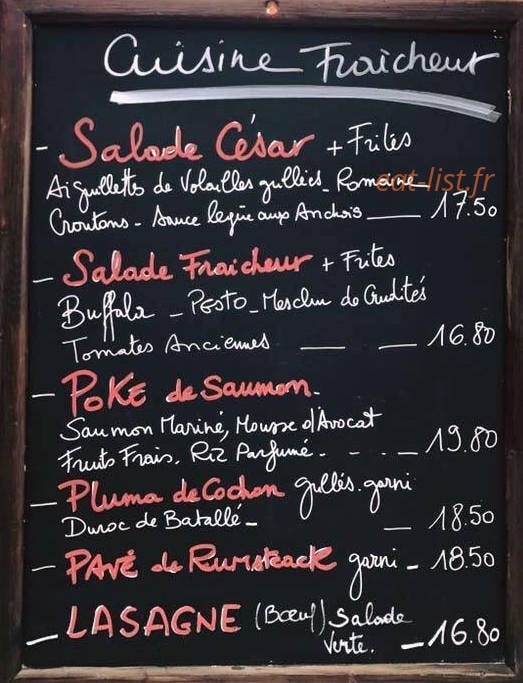 Cuisine Fraîcheur
- Salade César + Frites
Aiguillettes de Volailles grillées - Romaine
eat-list.fr
Croutons - Sauce legère aux Anchois — 17.50
- Salade Fraicheur + Frites
Buffala - PESTO - Mesclun de Crudités
Tomates Anciennes — — 16.80
- POKE de Saumon.
Saumon Mariné, Mousse d'Avocat
Fruits Frais. Riz Parfumé. - - - — 19.80
- Pluma de Cochon grillés. garni
Duroc de Batallé - — 18.50
- PAVÉ de Rumsteack garni - 18.50
- LASAGNE (Bœuf) Salade
Verte. - 16.80